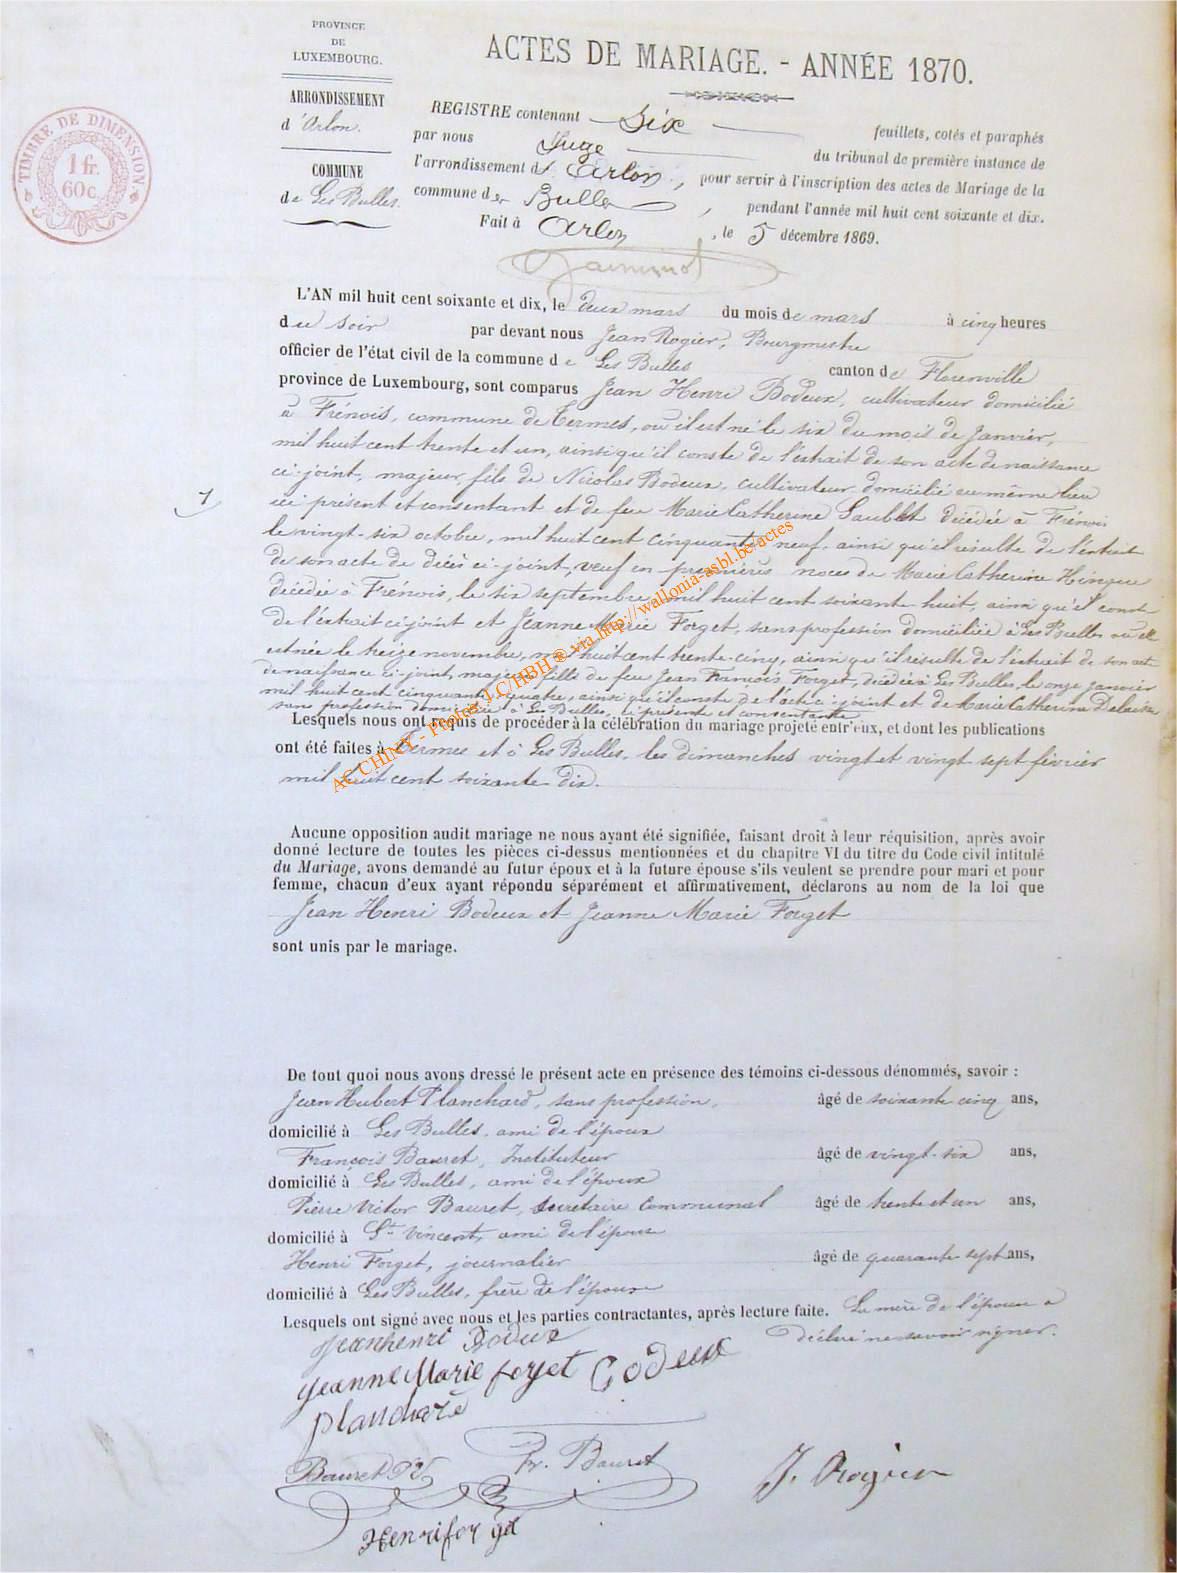 PROVINCE
DE
LUXEMBOURG.
ARRONDISSEMENT
d'Arlon.
COMMUNE
de Les Bulles.
TIMBRE DE DIMENSION
1 fr.
60c.
ACTES DE MARIAGE. - ANNÉE 1870.
REGISTRE contenant Six feuillets, cotés et paraphés
par nous Juge du tribunal de première instance de
l'arrondissement d'Arlon, pour servir à l'inscription des actes de Mariage de la
commune de Bulles, pendant l'année mil huit cent soixante et dix.
Fait à Arlon, le 5 décembre 1869.
1
L'AN mil huit cent soixante et dix, le deux mars du mois de mars à cinq heures
du soir par devant nous Jean Rogier, Bourgmestre
officier de l'état civil de la commune de Les Bulles canton de Florenville
province de Luxembourg, sont comparus Jean Henri Bodeux, cultivateur domicilié
à Frénois, commune de Termes, où il est né le six du mois de Janvier,
mil huit cent trente et un, ainsi qu'il conste de l'extrait de son acte de naissance
ci-joint, majeur, fils de Nicolas Bodeux, cultivateur domicilié au même lieu
ici présent et consentant et de feu Marie Catherine décédée à Frénois
le vingt-six octobre, mil huit cent cinquante neuf, ainsi qu'il résulte de l'extrait
de son acte de décès ci-joint, veuf en premières noces de Marie Catherine
décédée à Frenois, le six septembre mil huit cent soixante huit, ainsi qu'il conste
de l'extrait ci-joint et Jeanne Marie Forget, sans profession domiciliée à Les Bulles où elle
est née le treize novembre, mil huit cent trente-cinq, ainsi qu'il résulte de l'extrait de son acte
de naissance ci-joint, majeure, fille de feu Jean François Forget, décédé à Les Bulles, le onze janvier
mil huit cent cinquante quatre, ainsi qu'il conste de l'acte ci-joint et de Marie Catherine
sans profession domiciliée à Les Bulles, ci présente et consentante
Lesquels nous ont requis de procéder à la célébration du mariage projeté entr'eux, et dont les publications
ont été faites à Termes et à Les Bulles, les dimanches vingt et vingt sept février
mil huit cent soixante dix.
AC CHINY - Photos J.C/HBH ® via http://wallonia-asbl.be/actes
Aucune opposition audit mariage ne nous ayant été signifiée, faisant droit à leur réquisition, après avoir
donné lecture de toutes les pièces ci-dessus mentionnées et du chapitre VI du titre du Code civil intitulé
du Mariage, avons demandé au futur époux et à la future épouse s'ils veulent se prendre pour mari et pour
femme, chacun d'eux ayant répondu séparément et affirmativement, déclarons au nom de la loi que
Jean Henri Bodeux et Jeanne Marie Forget
sont unis par le mariage.
De tout quoi nous avons dressé le présent acte en présence des témoins ci-dessous dénommés, savoir :
Jean Hubert Planchard, sans profession, âgé de soixante cinq ans,
domicilié à Les Bulles, ami de l'époux
François Bauret, Instituteur âgé de vingt-six ans,
domicilié à Les Bulles, ami de l'époux
Pierre Victor Bauret, secrétaire communal âgé de trente et un ans,
domicilié à St Vincent, ami de l'époux
Henri Forget, journalier âgé de quarante-sept ans,
domicilié à Les Bulles, frère de l'épouse
Lesquels ont signé avec nous et les parties contractantes, après lecture faite. La mère de l'épouse a
déclaré ne savoir signer.
jeanhenri Bodeux
jeanne Marie forget
planchard
Bauret
Fr. Bauret
J. Rogier
Henri forget